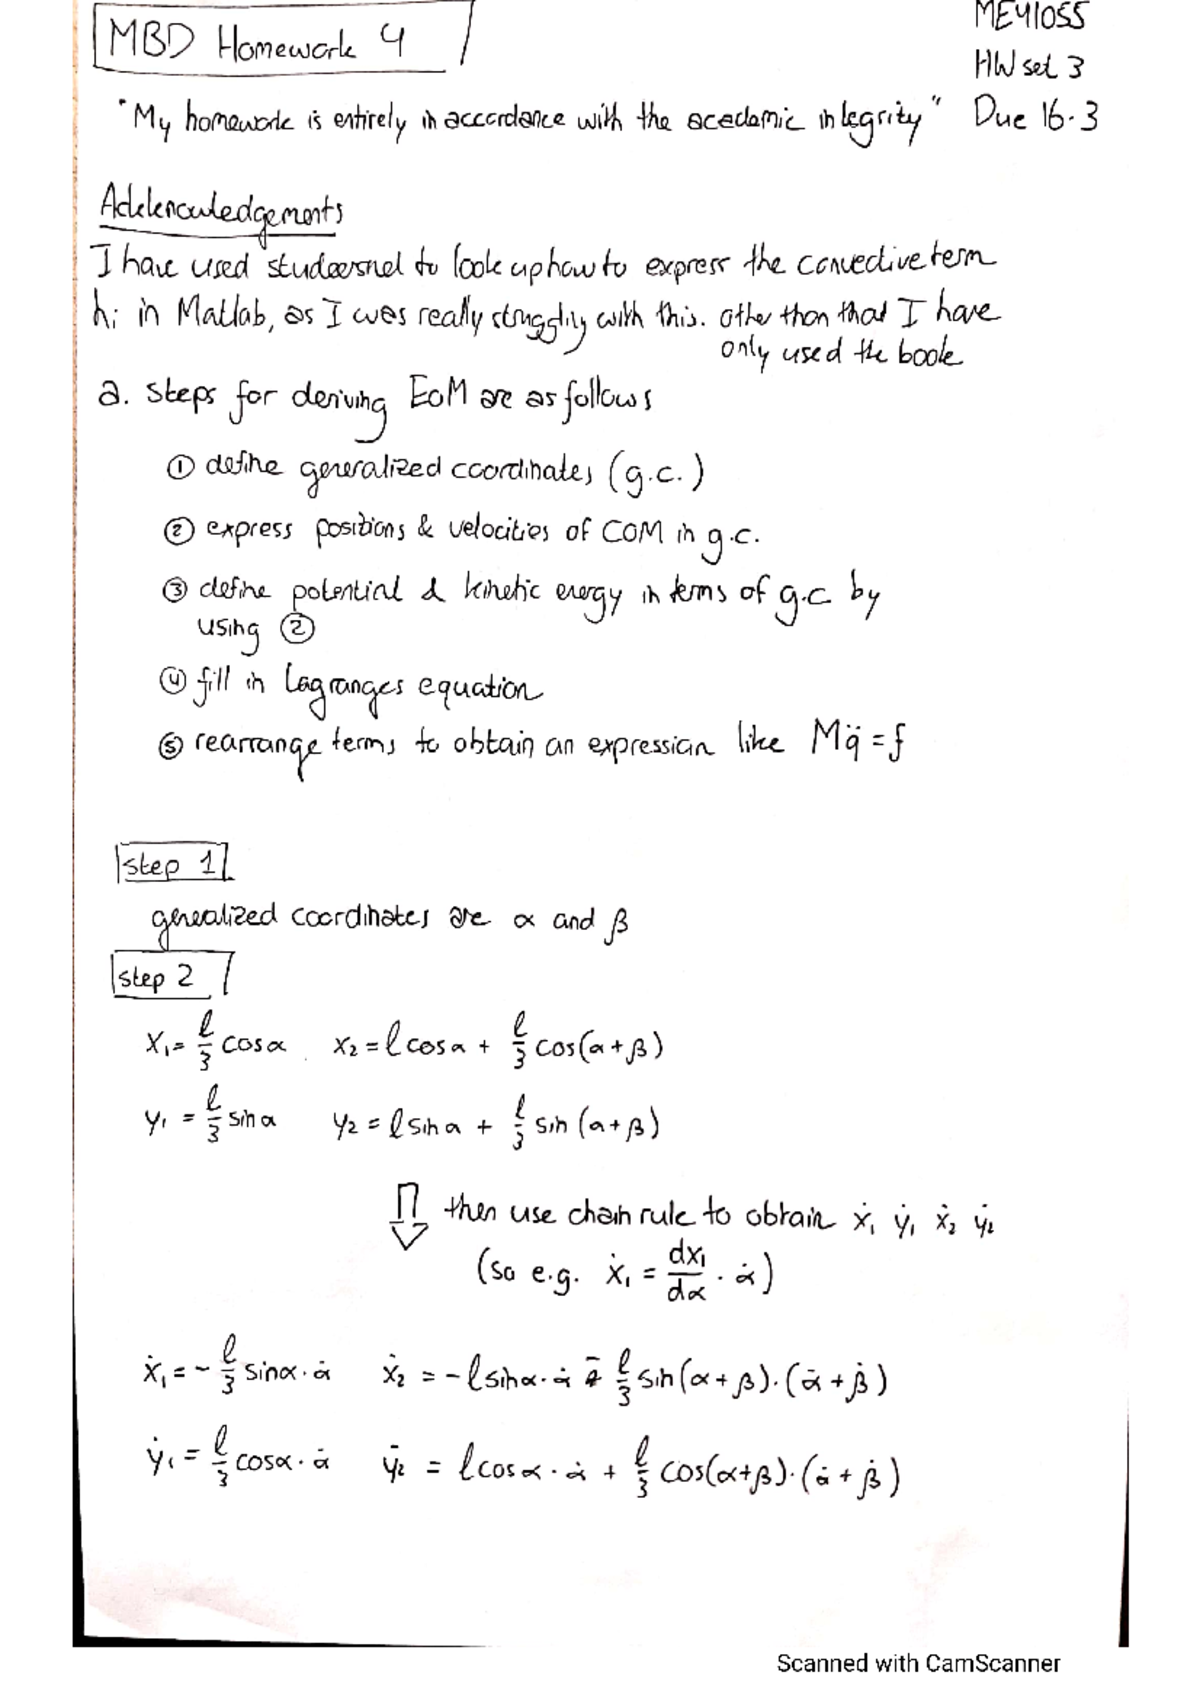 MBD Homework 4
ME41055
HW set 3
"My homework is entirely in accordance with the academic integrity" Due 16-3
Acknowledgements
I have used studeersnel to look up how to express the convective term
hi in Matlab, as I was really struggling with this. other than that I have
only used the book
a. steps for deriving EoM are as follows
① define generalized coordinates (g.c.)
② express positions & velocities of COM in g.c.
③ define potential & kinetic energy in terms of g.c by
using ②
④ fill in Lagranges equation
⑤ rearrange terms to obtain an expression like Mq̈ = f
step 1
generalized coordinates are α and β
step 2
x₁ = l/3 cosα x₂ = l cosα + l/3 cos(α+β)
y₁ = l/3 sinα y₂ = l sinα + l/3 sin(α+β)
⇩ then use chain rule to obtain ẋ₁ ẏ₁ ẋ₂ ẏ₂
(so e.g. ẋ₁ = dx₁/dα · α̇)
ẋ₁ = - l/3 sinα · α̇ ẋ₂ = - l sinα · α̇ - l/3 sin(α+β) · (α̇ + β̇)
ẏ₁ = l/3 cosα · α̇ ẏ₂ = l cosα · α̇ + l/3 cos(α+β) · (α̇ + β̇)
Scanned with CamScanner